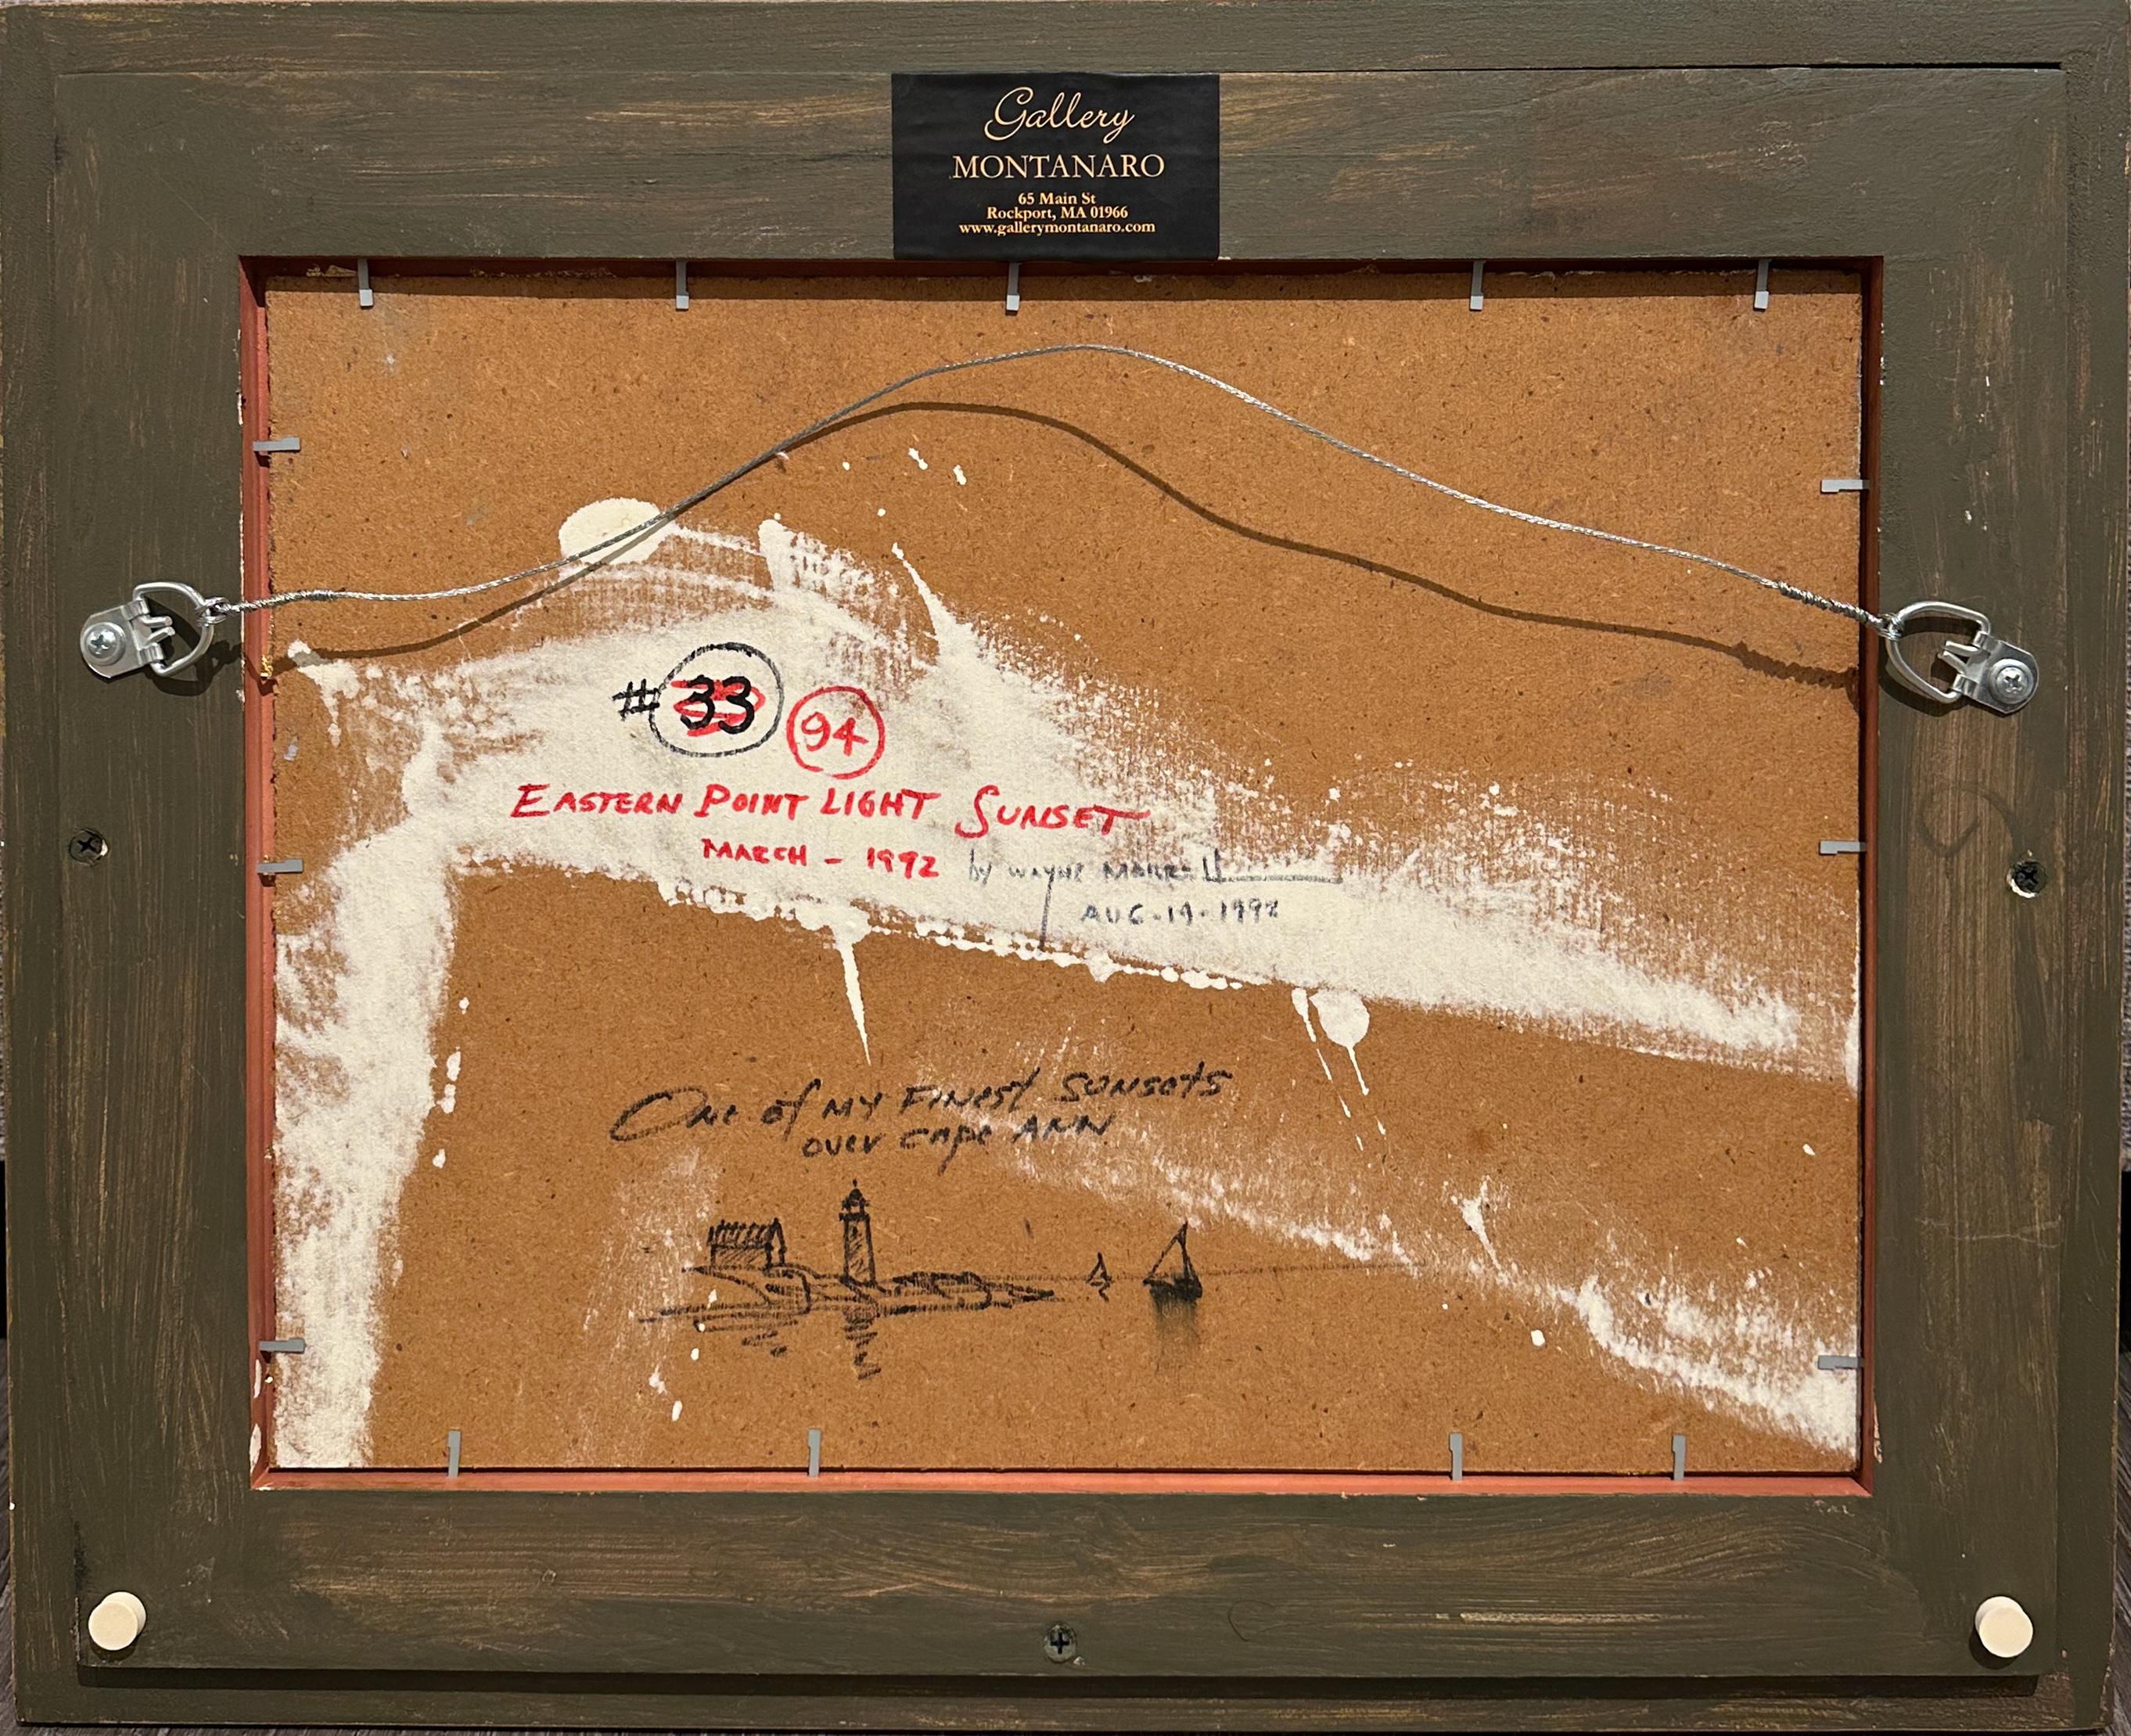 Gallery
MONTANARO
65 Main St
Rockport, MA 01966
www.gallerymontanaro.com
#33 94
EASTERN POINT LIGHT SUNSET
MARCH - 1992 by WAYNE MORRELL
AUG-19-1992
One of MY FINEST SUNSETS
over cape ANN